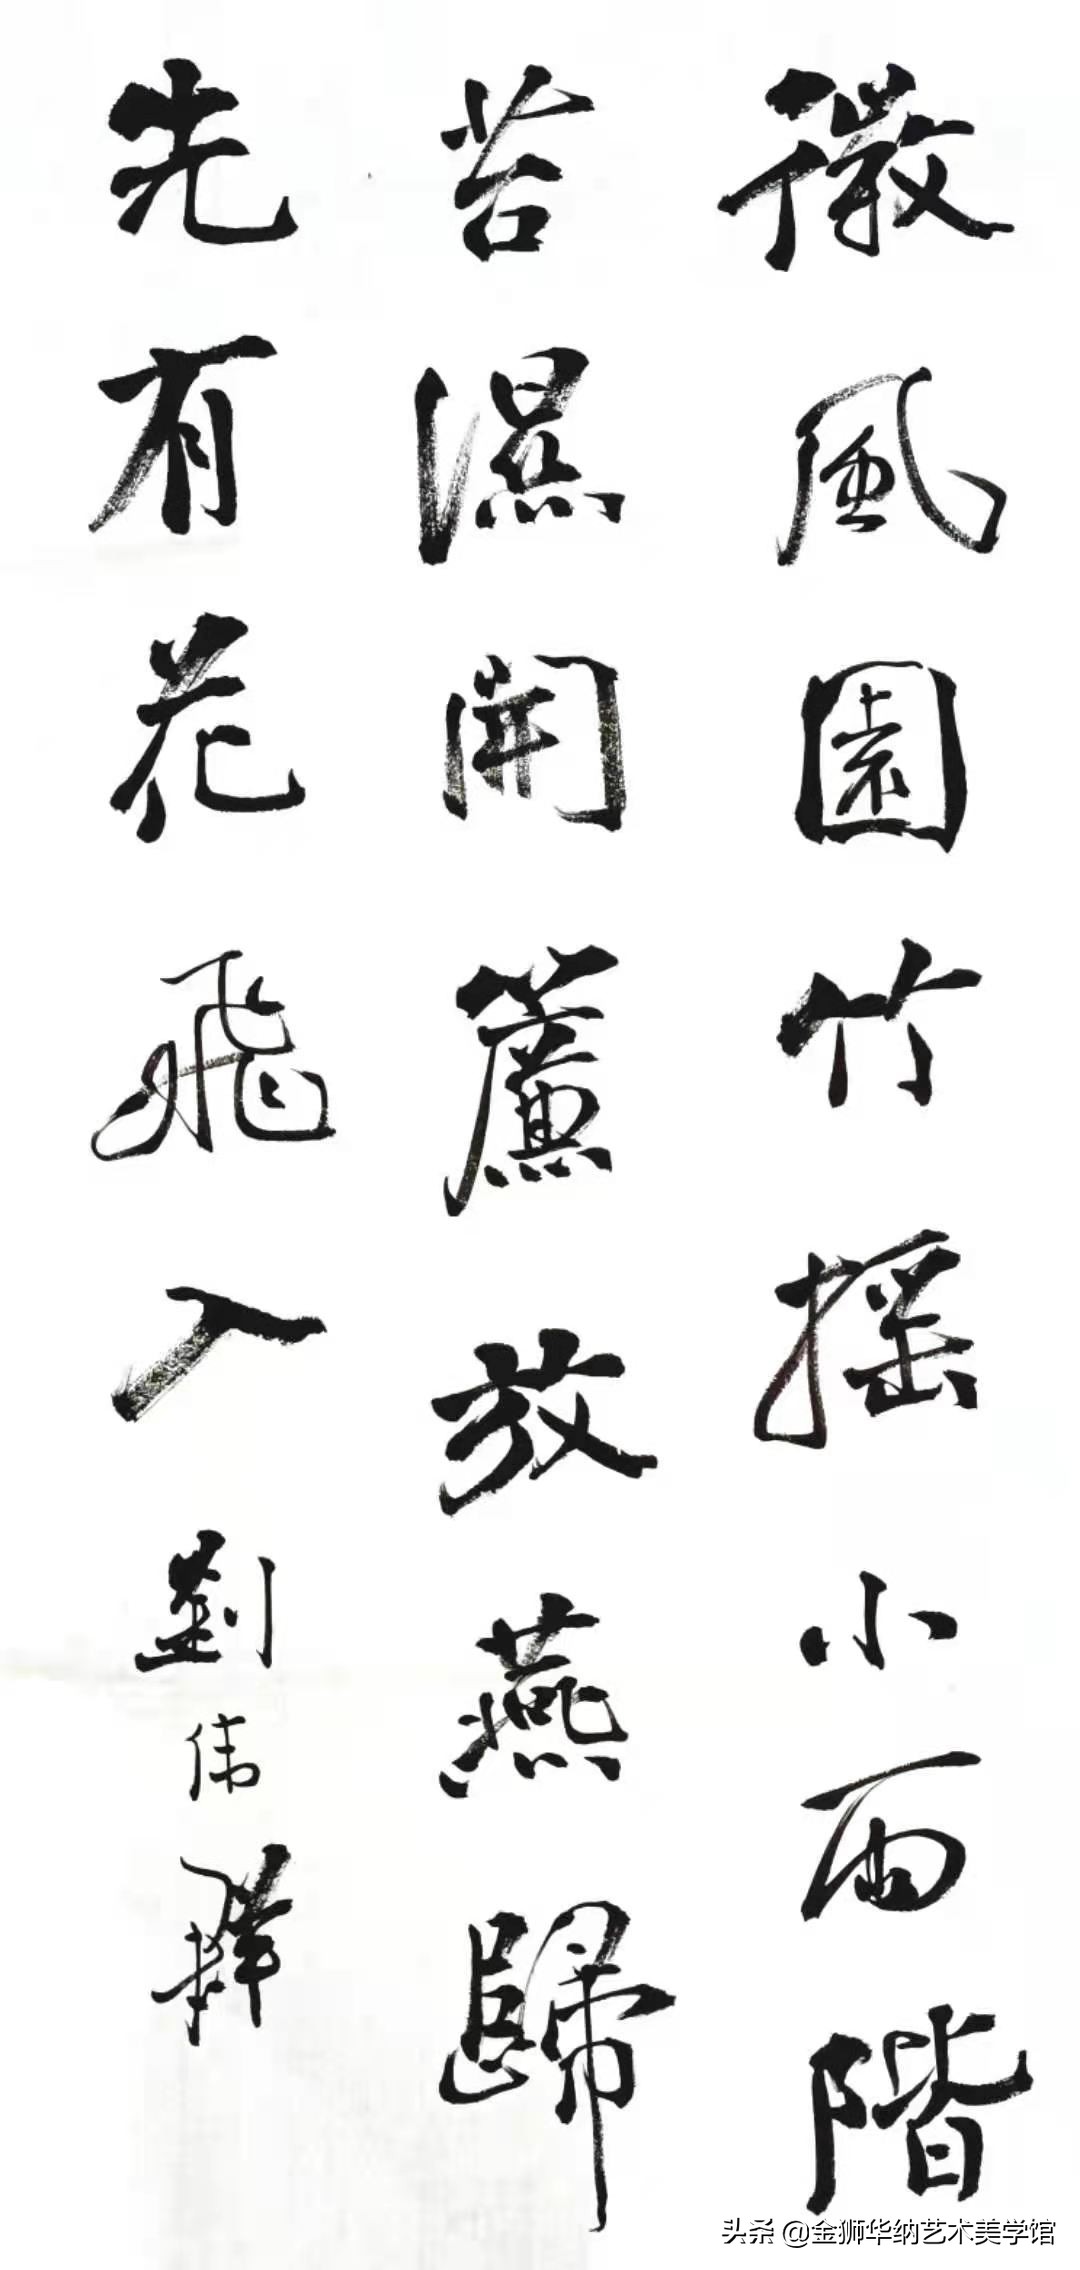 微風園竹摇小西階
苔濕開簾放燕歸
先有花飛入
劉伟
头条 @金狮华纳艺术美学馆